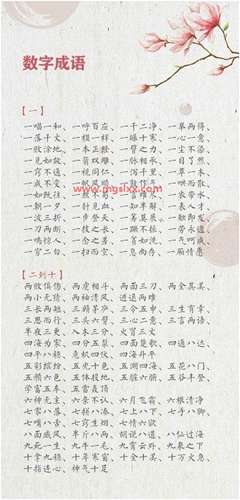 数字成语
【一】
一唱一和、一呼百应、一干二净、一举两得、
一落千丈、一模一样、一曝十寒、一心一意、
一败涂地、一本正经、一臂之力、一尘不染、
一见如故、一箭双雕、一脉相承、一目了然、
一窍不通、一视同仁、一泻千里、一草一木、
一成不变、一哄而散、
www.mgslxx.com
一如既往、一言难尽、一衣带水、
一朝一夕、一针见血、一知半解、一表人才、
一波三折、一步登天、一筹莫展、一触即发、
一刀两断、一技之长、一蹶不振、一劳永逸、
一鸣惊人、一念之差、一贫如洗、一气呵成、
一穷二白、一扫而空、一息尚存、一厢情愿
【二到十】
两败俱伤、两肋插刀、两面三刀、两全其美、
两小无猜、两袖清风、进退两难
三长两短、三顾茅庐、三令五申、三生有幸、
三思而行、三头六臂、三心二意、三言两语、
半夜三更、入木三分、火冒三丈
四海为家、四分五裂、四面楚歌、四通八达、
四平八稳、危机四伏、四海升平
五彩缤纷、五光十色、五湖四海、五花八门、
五颜六色、五体投地、五脏六腑、五谷丰登、
学富五车、五雷轰顶
六神无主、六亲不认、六月飞霜、六根清净
七零八落、七拼八凑、七上八下、七手八脚、
七嘴八舌、七窍生烟、七情六欲
八面威风、半斤八两、胡说八道、八仙过海
九死一生、九牛一毛、九霄云外、九泉之下
十拿九稳、十年寒窗、十全十美、十万火急、
十指连心、神气十足